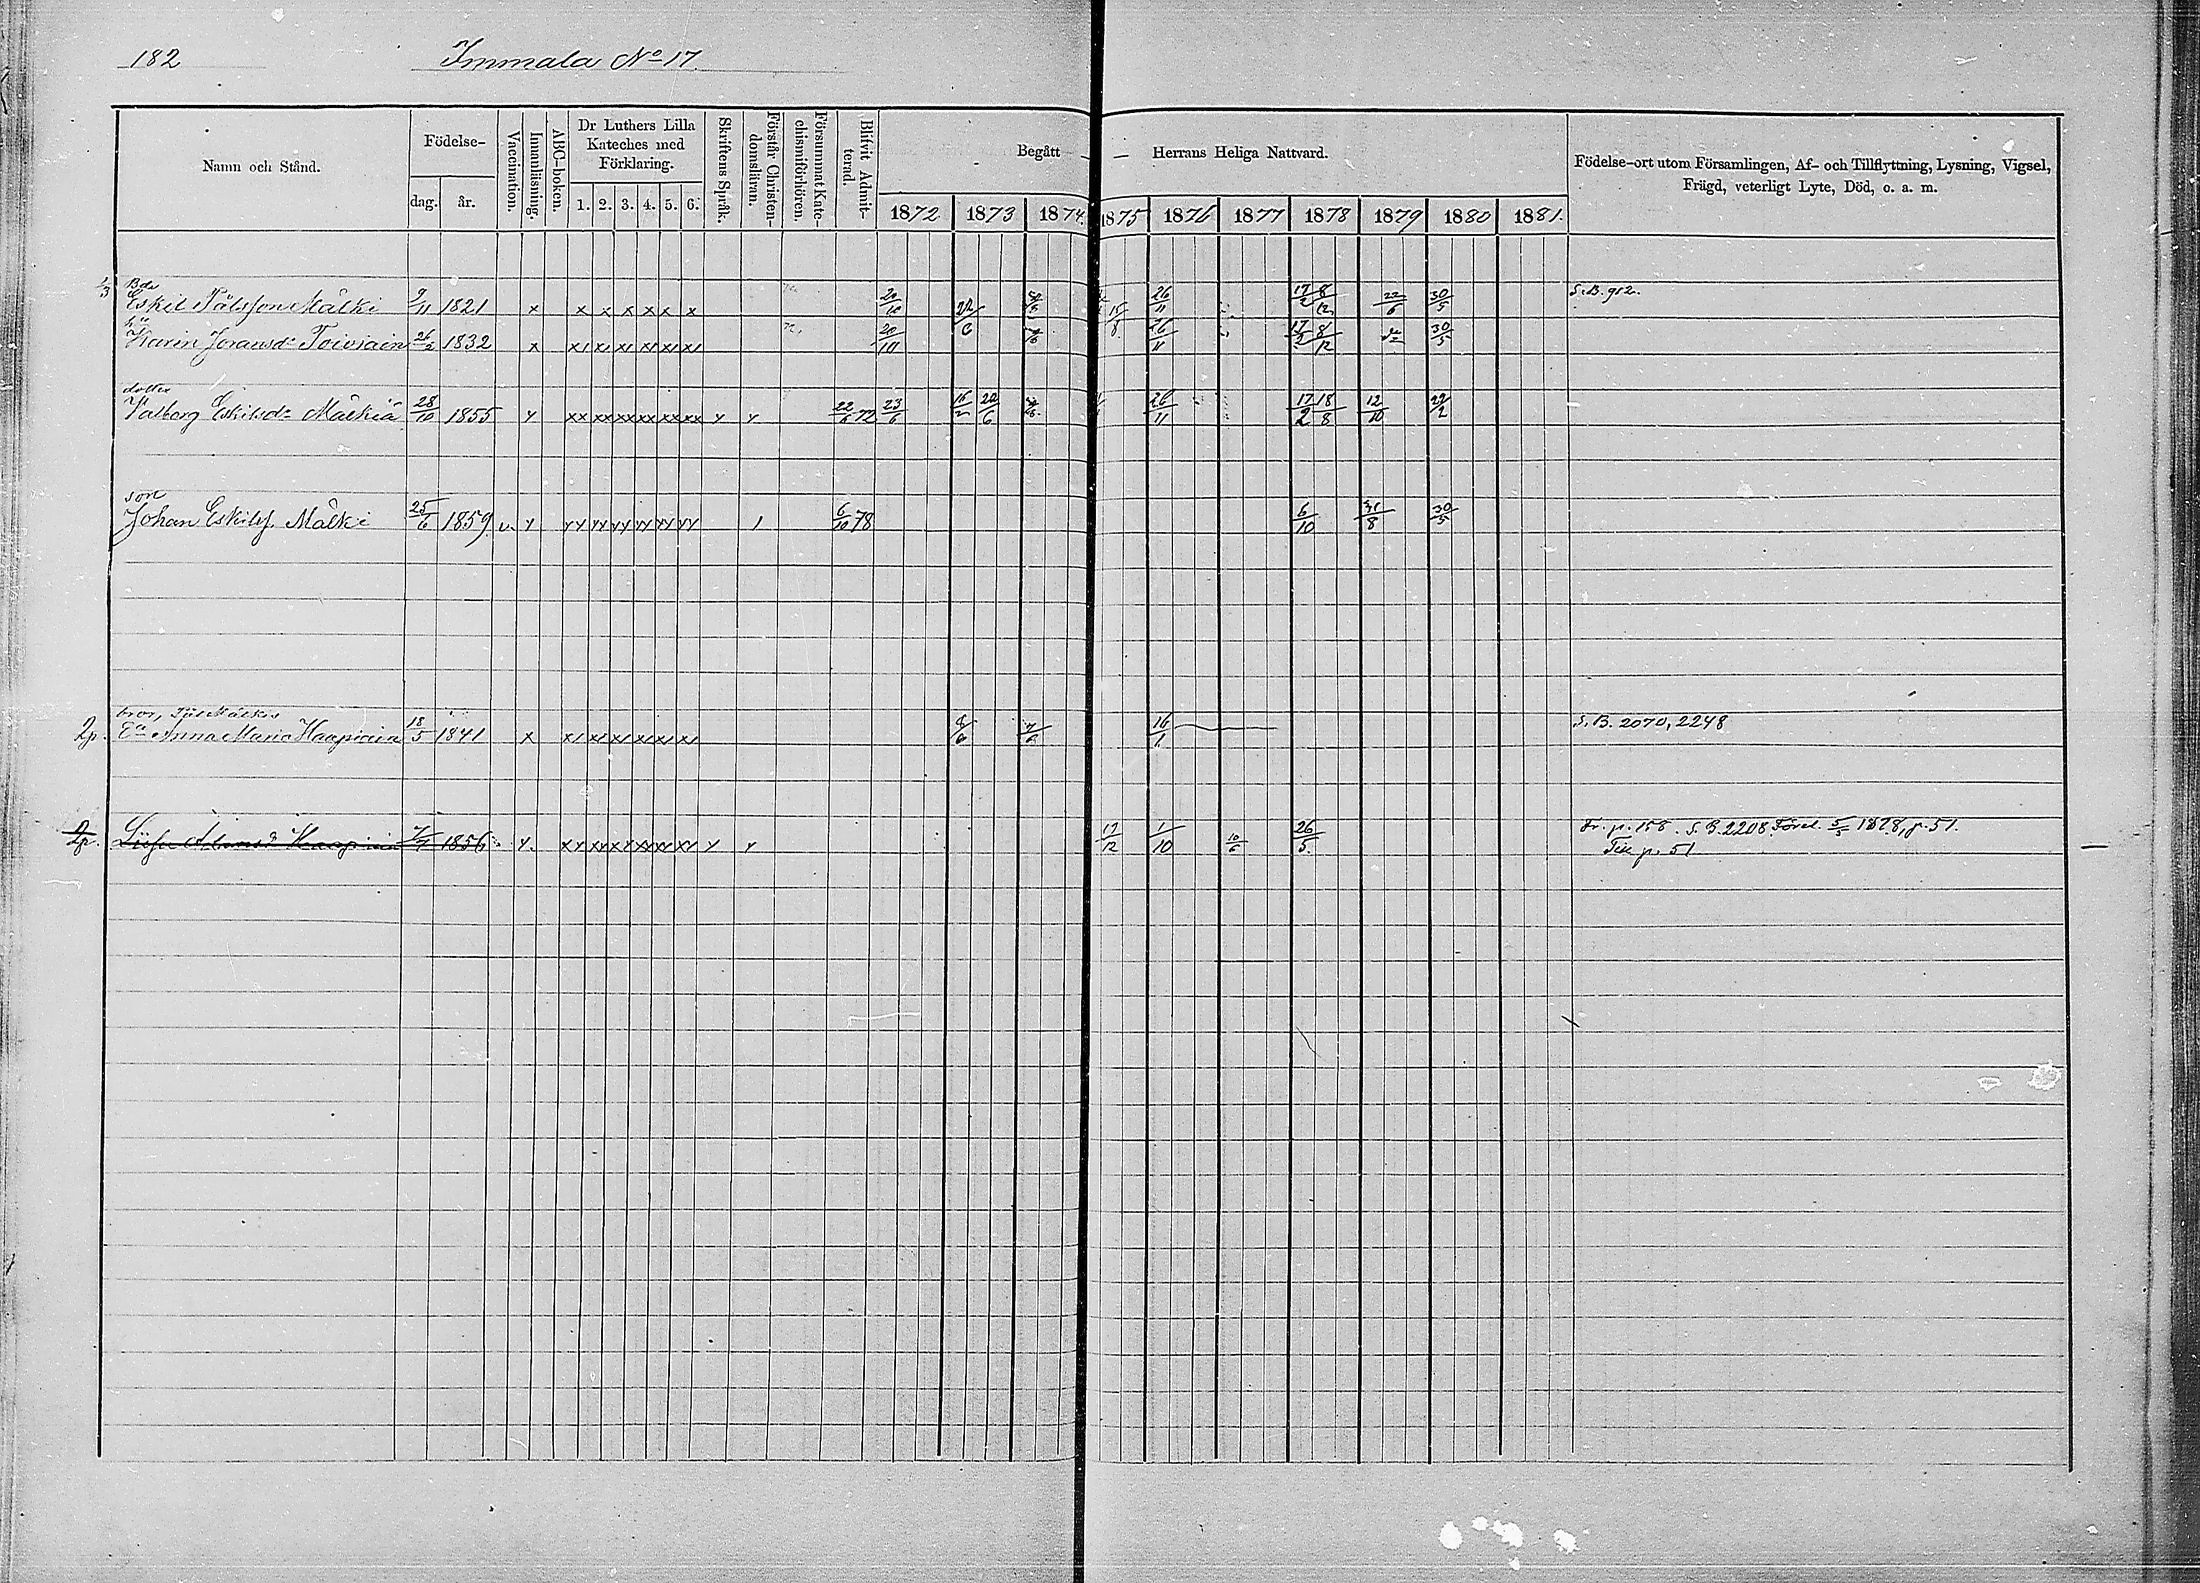 182 Immala No 17.
Namn och Stånd.
Födelse-
dag. år.
Vaccination.
Innanläsning.
ABC-boken.
Dr Luthers Lilla
Kateches med
Förklaring.
1. 2. 3. 4. 5. 6.
Skriftens Språk.
Förstår Christen-
domsläran.
Försummat Kate-
chismiförhören.
Blifvit Admit-
terad.
Begått — — Herrans Heliga Nattvard.
1872 1873 1874. 1875 1876 1877 1878 1879 1880 1881.
Födelse-ort utom Församlingen, Af- och Tillflyttning, Lysning, Vigsel,
Frägd, veterligt Lyte, Död, o. a. m.
1/3 Bde
Eskil Pålsson Mälki 9/11 1821 x x x x x x x 20/10 22/6 26/11 17/2 8/12 22/6 30/5 S.B. 912.
h:u
Karin Jöransdr Toiviain 26/2 1832 x 20/10 26/11 17/2 8/12 30/5
dotter
Valborg Eskilsdr Mälkiä 28/10 1855 22/6 72 23/6 16/2 22/6 26/11 17/2 18/8 12/10 22/2
son
Johan Eskilss. Mälki 25/6 1859. v. 6/10 78 6/10 31/8 30/5
bror, Pål Mälkis
2p. Ea Anna Maria Haapiain 18/5 1841 x 8/6 7/6 16/1 S.B. 2070, 2248
2p. Liisa Adamsdr Haapiain 7/7 1856 12/12 1/10 10/6 26/5. Fr. p. 158. S.B. 2208. Förel. 5/5 1878, p. 51.
Till p. 51